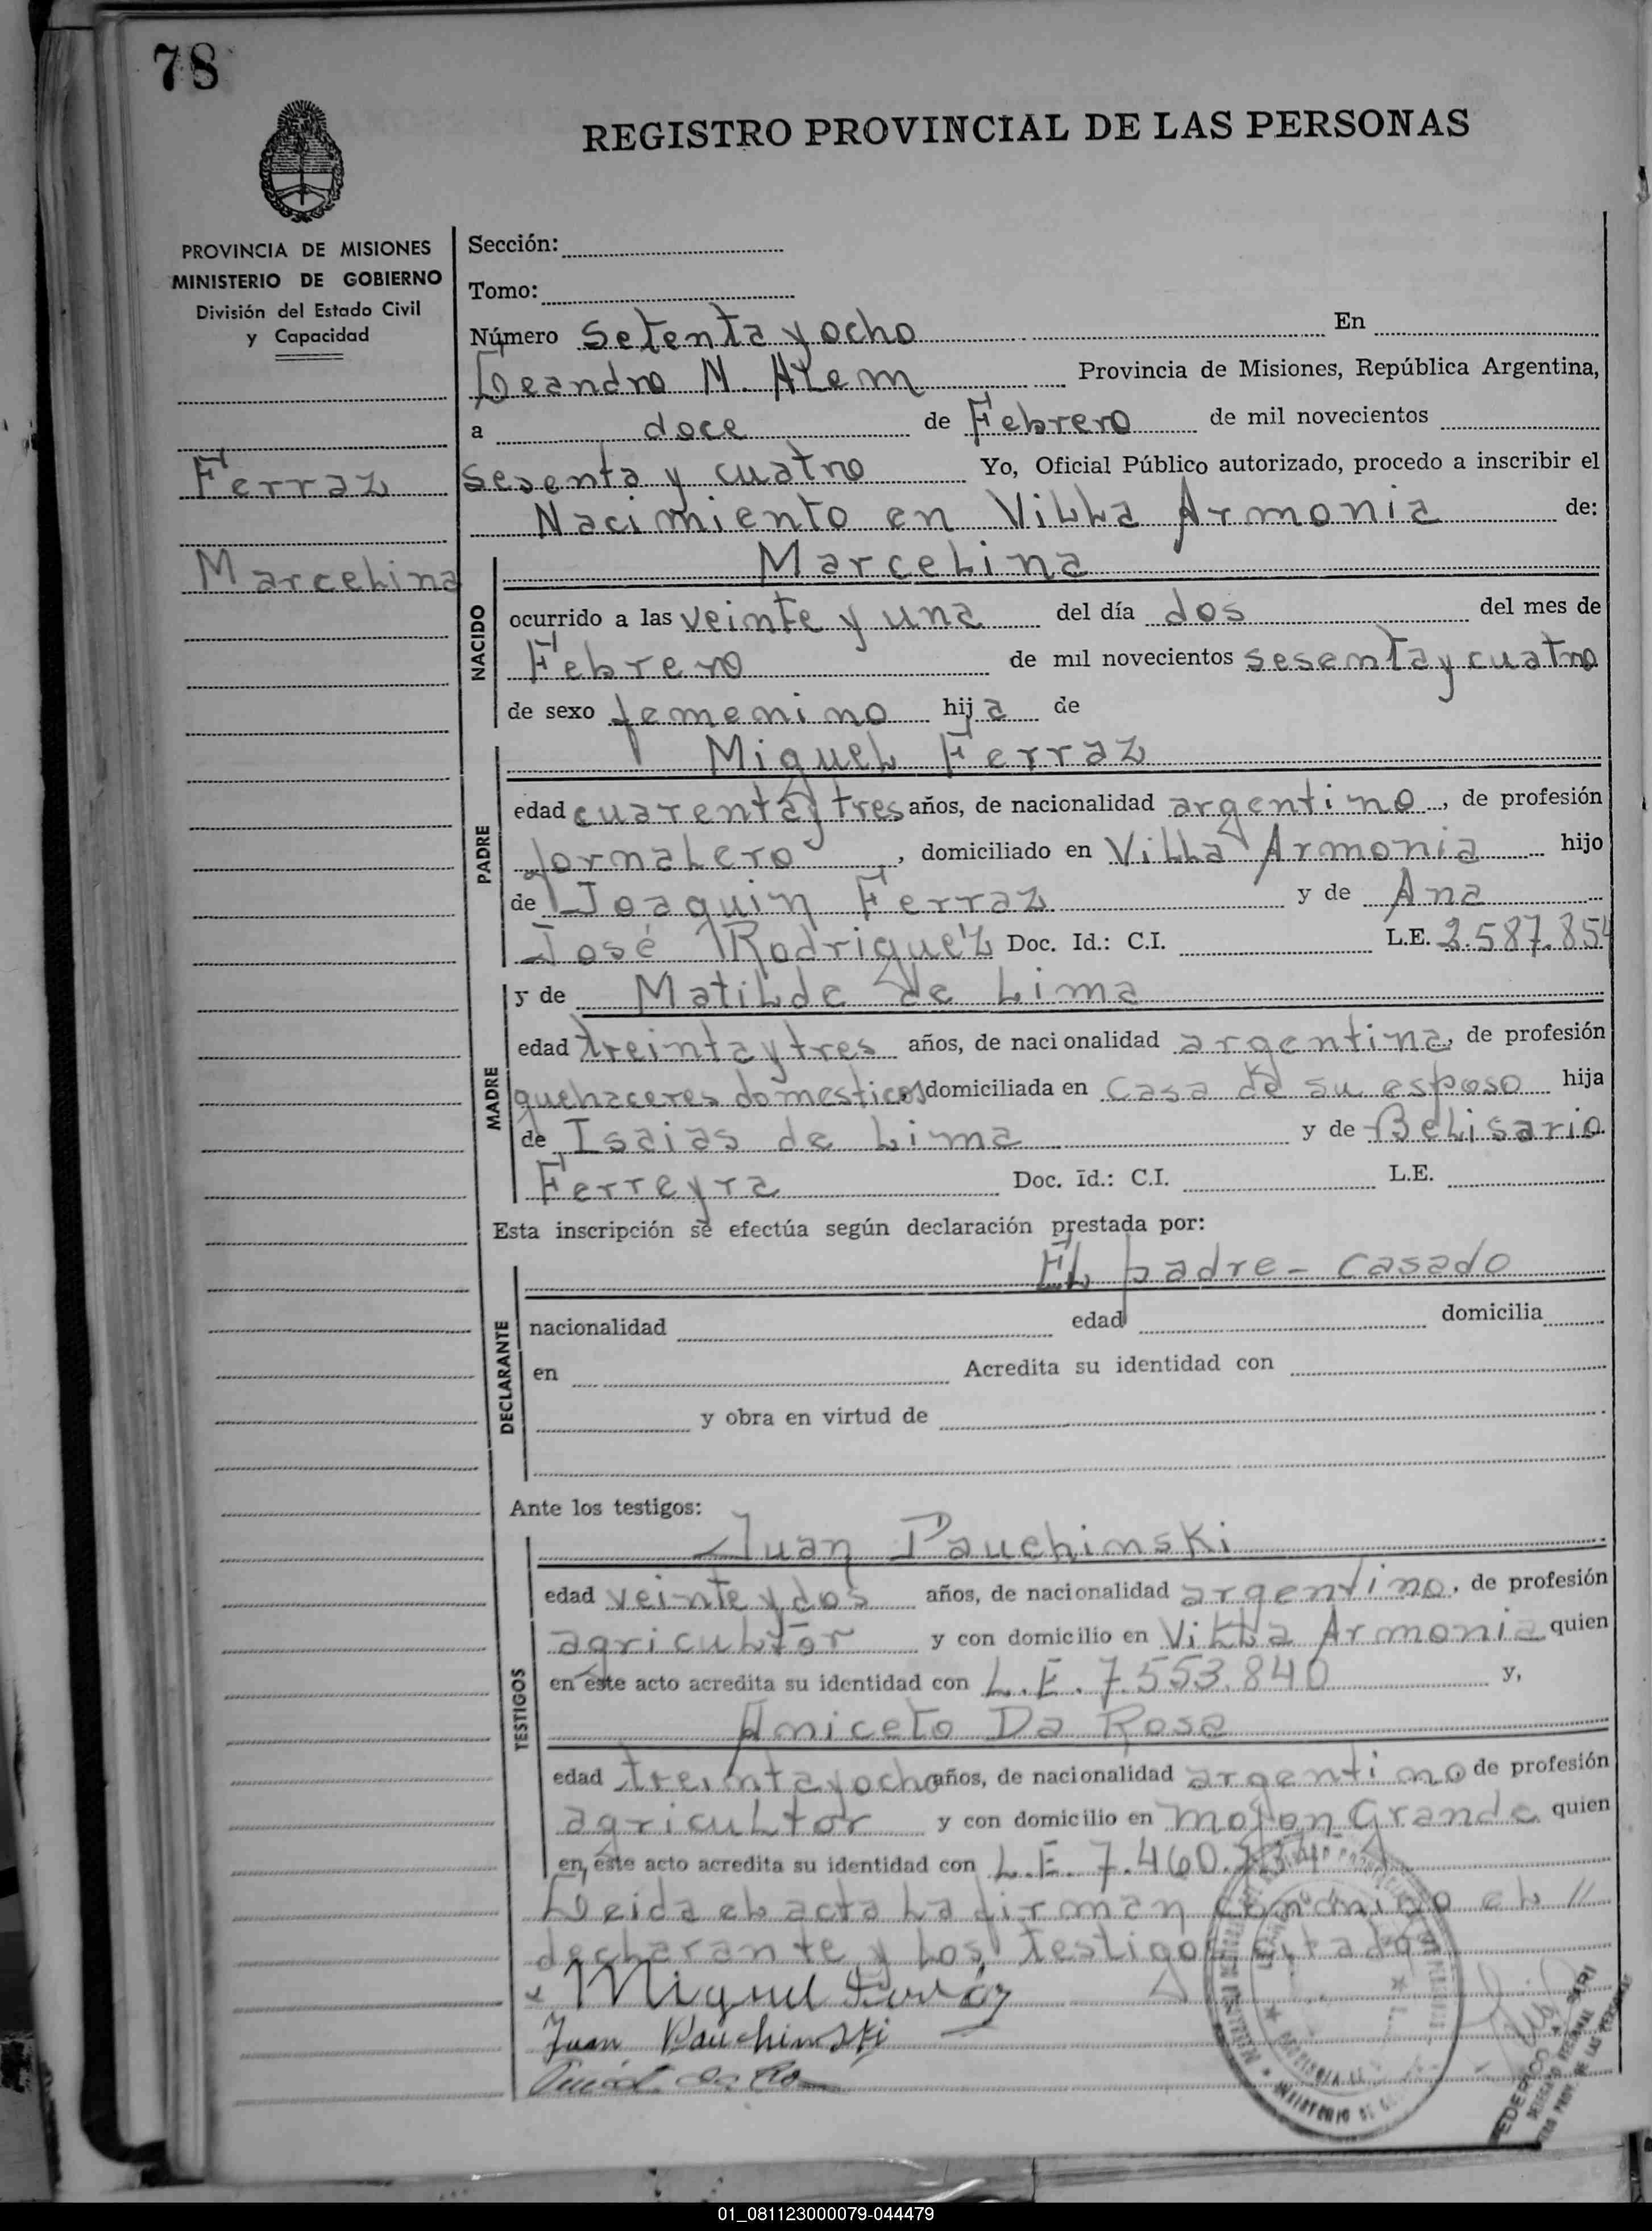 78
REGISTRO PROVINCIAL DE LAS PERSONAS
PROVINCIA DE MISIONES
MINISTERIO DE GOBIERNO
División del Estado Civil
y Capacidad
Ferraz
Marcelina
Sección:
Tomo:
Número Setenta y ocho En
Leandro N. Alem Provincia de Misiones, República Argentina,
a doce de Febrero de mil novecientos
sesenta y cuatro Yo, Oficial Público autorizado, procedo a inscribir el
Nacimiento en Villa Armonia de:
NACIDO
Marcelina
ocurrido a las veinte y una del día dos del mes de
Febrero de mil novecientos sesenta y cuatro
de sexo femenino hija de
PADRE
Miguel Ferraz
edad cuarenta y tres años, de nacionalidad argentino, de profesión
Jornalero, domiciliado en Villa Armonia hijo
de Joaquin Ferraz y de Ana
José Rodriguez Doc. Id.: C.I. L.E. 2.587.854
MADRE
y de Matilde de Lima
edad treinta y tres años, de nacionalidad argentina, de profesión
quehaceres domesticos, domiciliada en casa de su esposo hija
de Isaias de Lima y de Belisario
Ferreyra Doc. Id.: C.I. L.E.
Esta inscripción se efectúa según declaración prestada por:
DECLARANTE
El padre - casado
nacionalidad edad domicilia
en Acredita su identidad con
y obra en virtud de
Ante los testigos:
TESTIGOS
Juan Pauchinski
edad veinte y dos años, de nacionalidad argentino, de profesión
agricultor y con domicilio en Villa Armonia quien
en este acto acredita su identidad con L.E. 7.553.840 y,
Aniceto Da Rosa
edad treinta y ocho años, de nacionalidad argentino de profesión
agricultor y con domicilio en mojon Grande quien
en este acto acredita su identidad con L.E. 7.460.
Leida el acta la firman conmigo el //
declarante y los testigos citados
x Miguel Ferráz
Juan Pauchinski
01_081123000079-044479